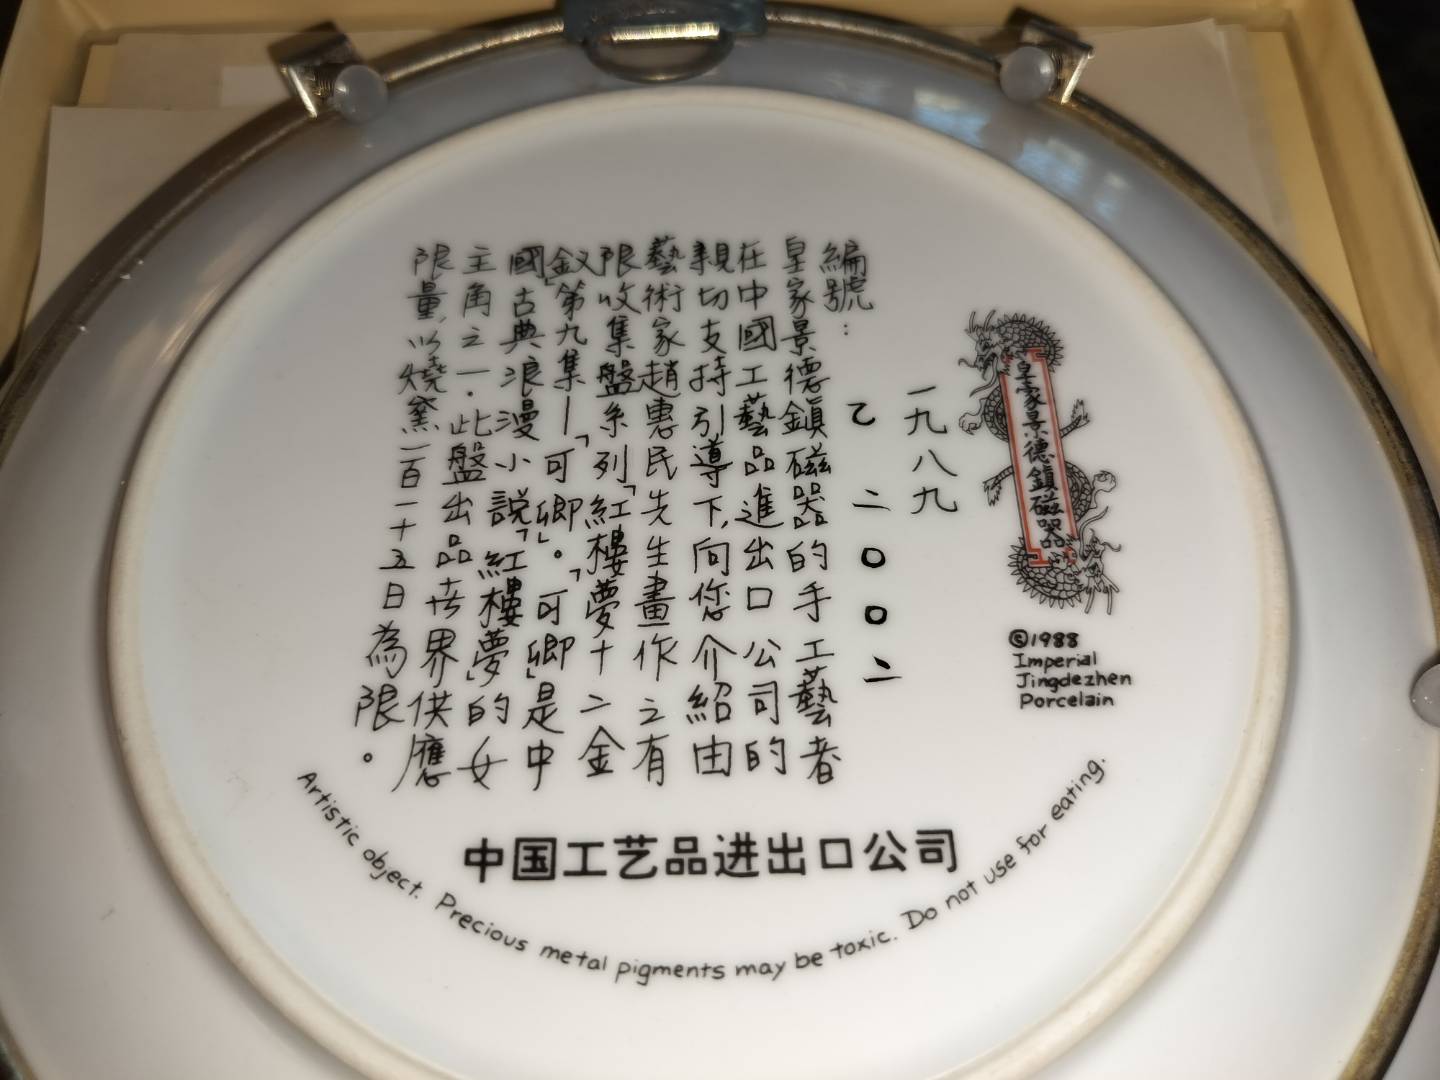 皇家景德鎮磁器
©1988
Imperial
Jingdezhen
Porcelain
一九八九
編號：乙二〇〇二
皇家景德鎮磁器的手工藝者
在中國工藝品進出口公司的
親切支持引導下,向您介紹由
藝術家趙惠民先生畫作之有
限收集盤系列「紅樓夢十二金
釵」第九集—「可卿」。「可卿」是中
國古典浪漫小説「紅樓夢」的女
主角之一．此盤出品世界供應
限量,以燒窯一百一十五日為限。
中国工艺品进出口公司
Artistic object. Precious metal pigments may be toxic. Do not use for eating.